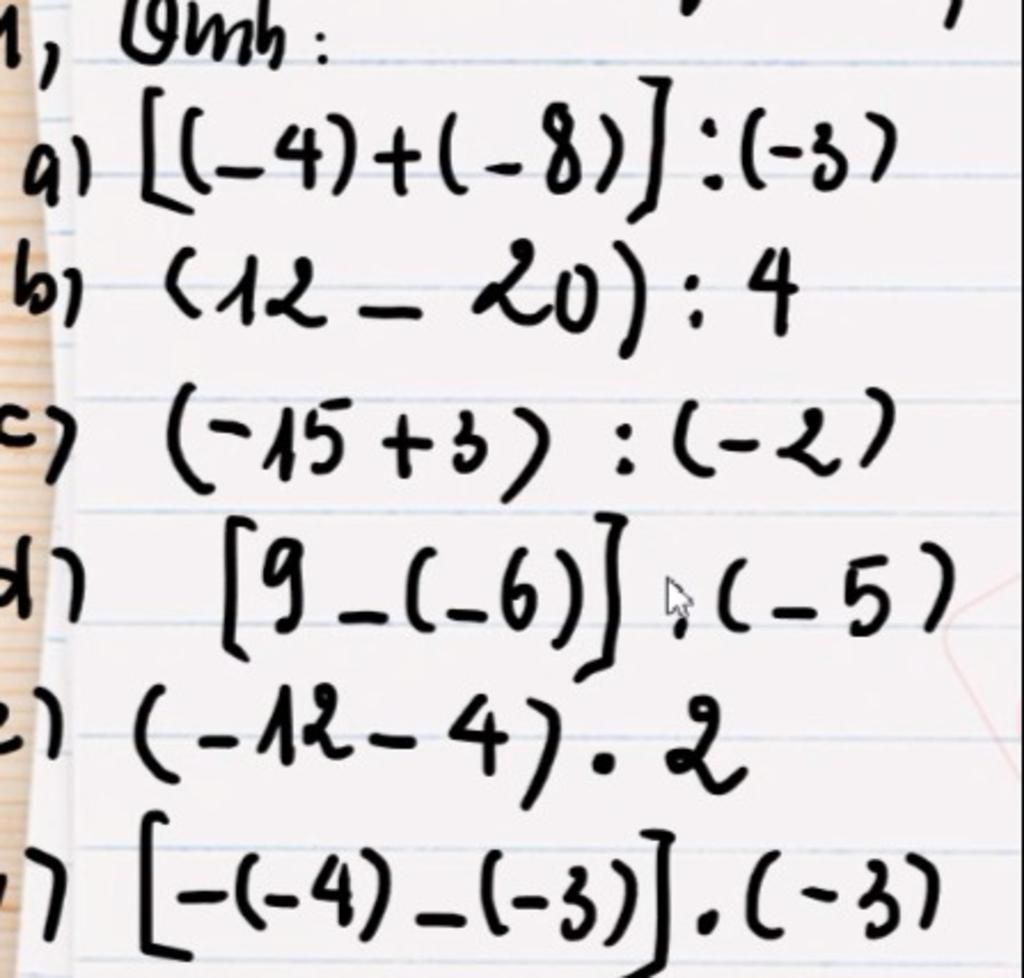 Tính :
a) [(-4)+(-8)] : (-3)
b) (12 - 20) : 4
c) (-15 + 3) : (-2)
d) [9 - (-6)] : (-5)
e) (-12 - 4) . 2
[-(-4) - (-3)] . (-3)